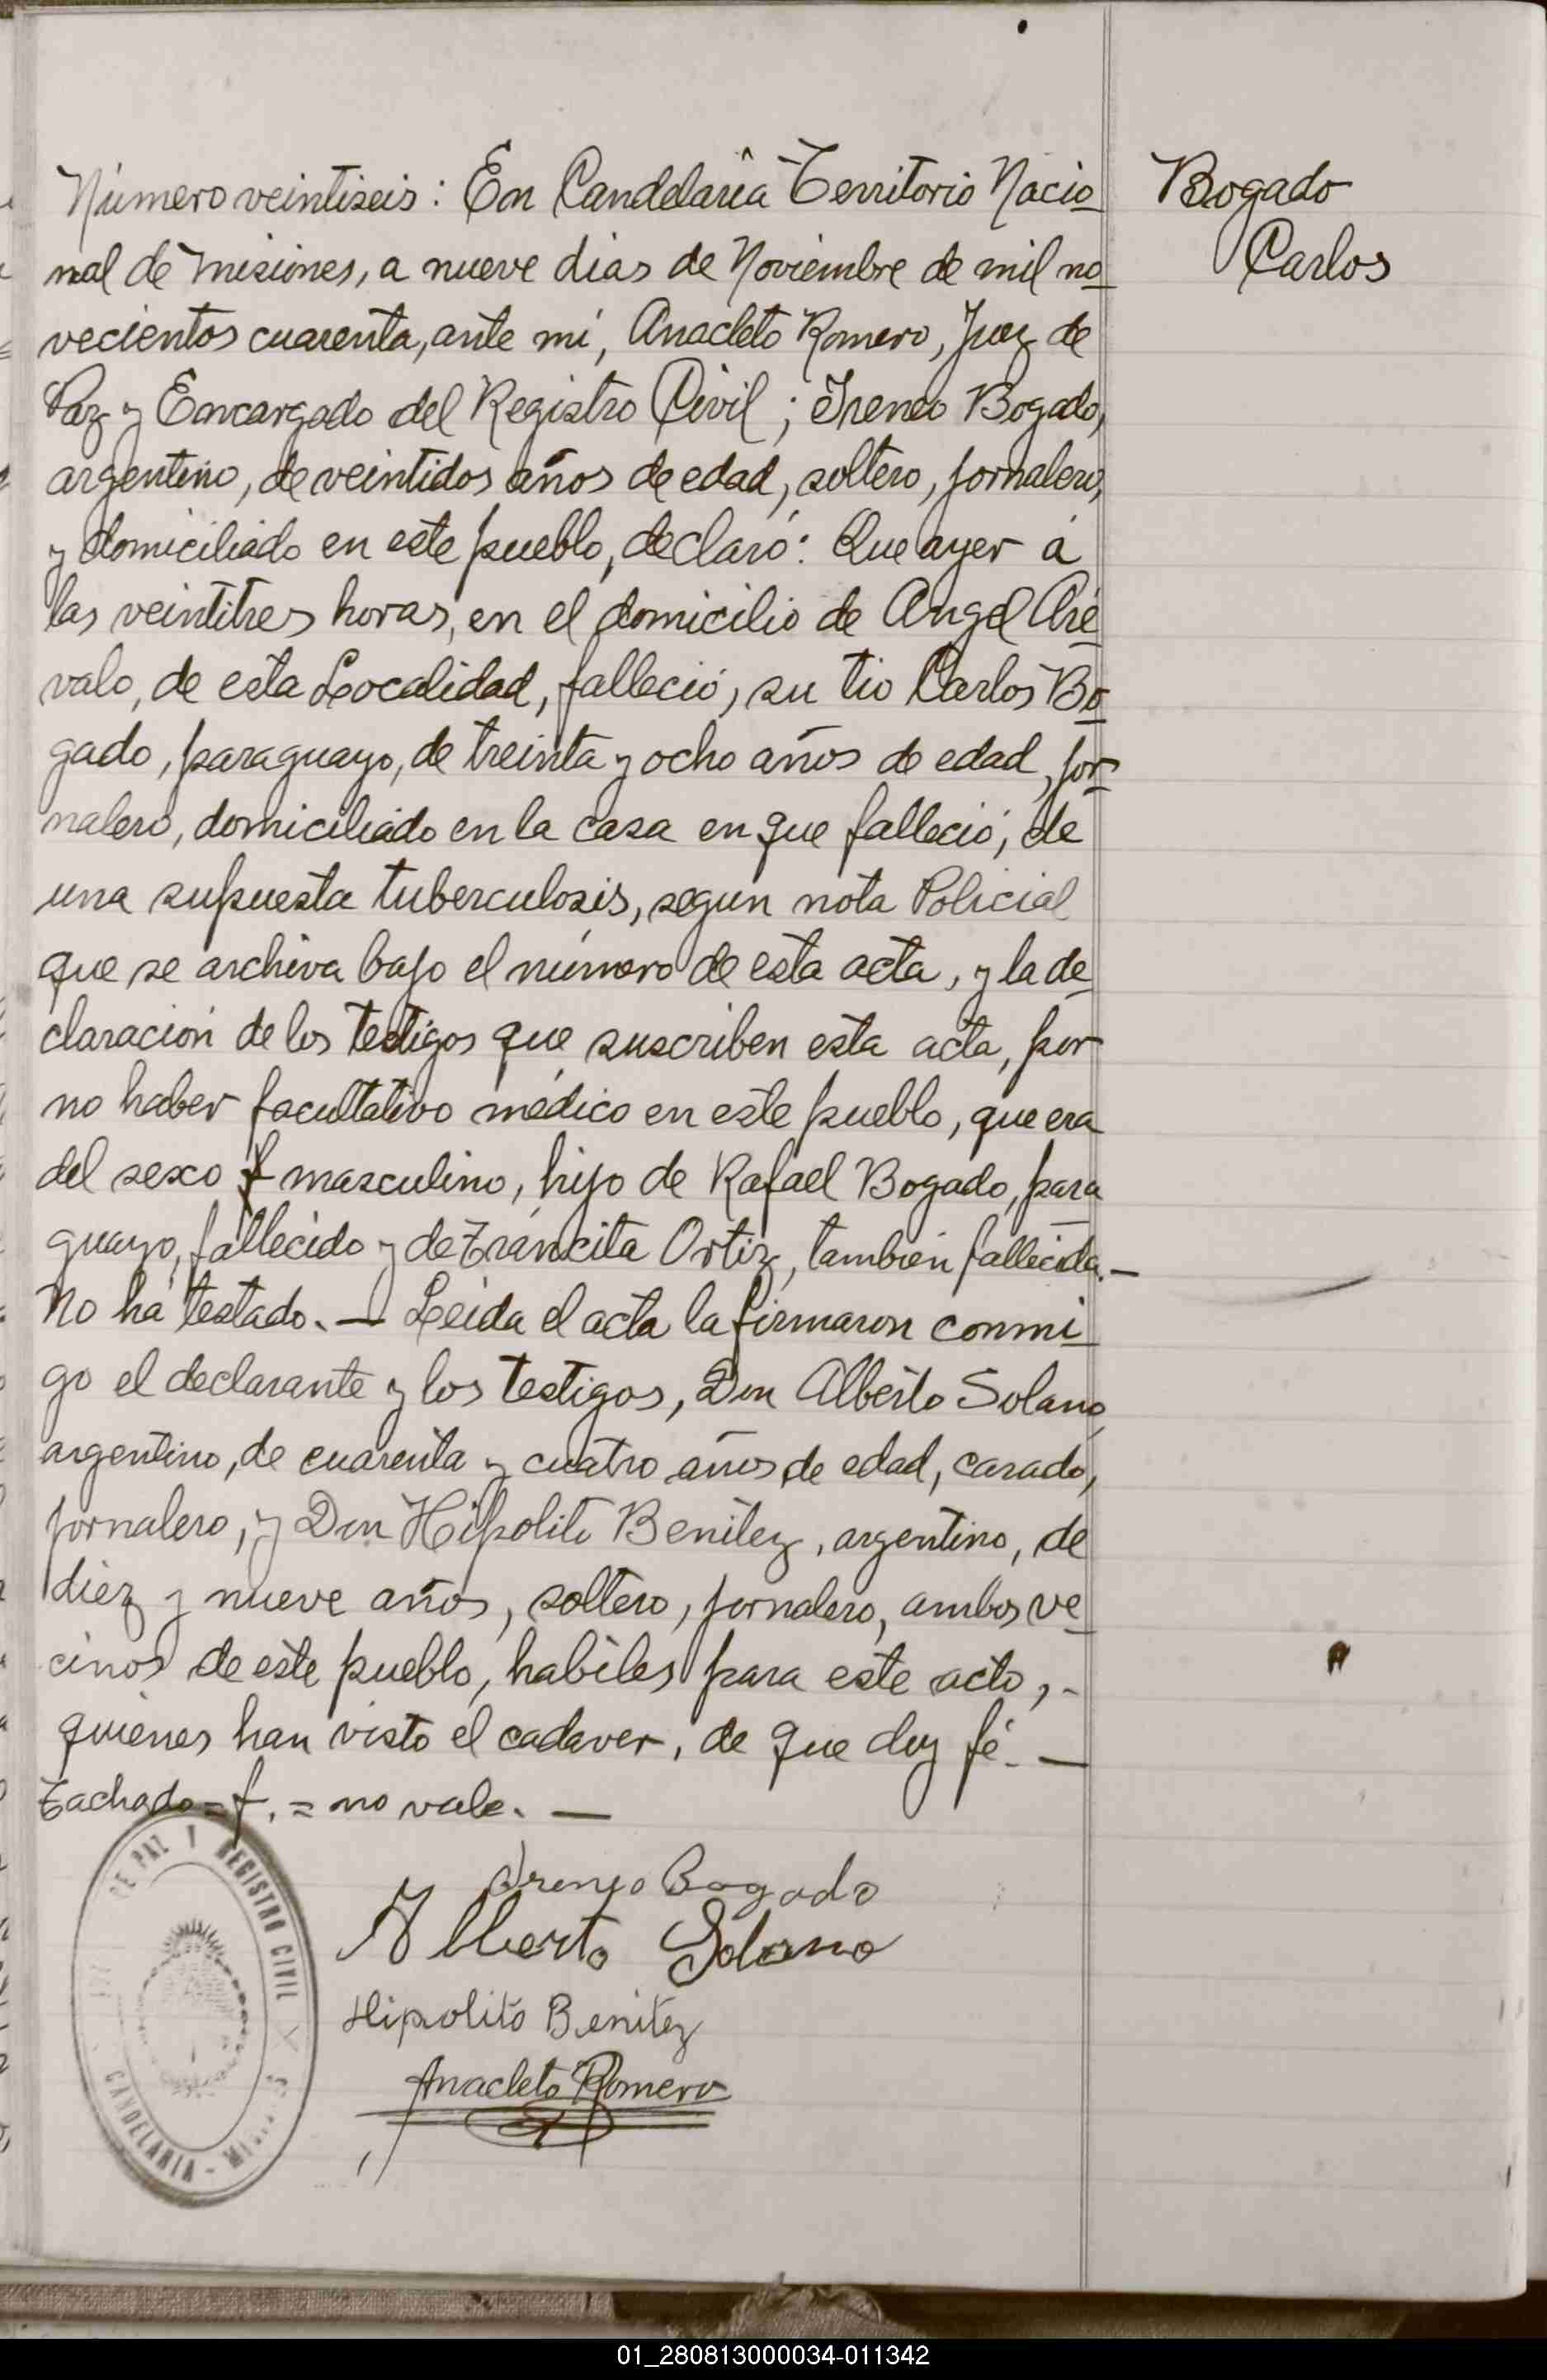 Número veintiseis: En Candelaria Territorio Nacio
nal de Misiones, a nueve dias de Noviembre de mil no
vecientos cuarenta, ante mí, Anacleto Romero, Juez de
Paz y Encargado del Registro Civil; Ireneo Bogado,
argentino, de veintidos años de edad, soltero, jornalero,
y domiciliado en este pueblo, declaró: Que ayer á
las veintitres horas, en el domicilio de Angel Aré
valo, de esta Localidad, falleció, su tio Carlos Bo
gado, paraguayo, de treinta y ocho años de edad, jor
nalero, domiciliado en la casa en que falleció, de
una supuesta tuberculosis, segun nota Policial
que se archiva bajo el número de esta acta, y la de
claración de los testigos que suscriben esta acta, por
no haber facultativo médico en este pueblo, que era
del sexo f masculino, hijo de Rafael Bogado, para
guayo, fallecido y de Tráncita Ortiz, tambien fallecida.—
No há testado. — Leida el acta la firmaron conmi
go el declarante y los testigos, Don Alberto Solano,
argentino, de cuarenta y cuatro años de edad, casado,
jornalero, y Don Hipolito Benitez, argentino, de
diez y nueve años, soltero, jornalero, ambos ve
cinos de este pueblo, habiles para este acto, -
quienes han visto el cadaver, de que doy fé. —
Tachado = f. = no vale. —
Ireneo Bogado
Alberto Solano
Hipolito Benitez
Anacleto Romero
Bogado
Carlos
DE PAZ Y REGISTRO CIVIL
CANDELARIA -
01_280813000034-011342